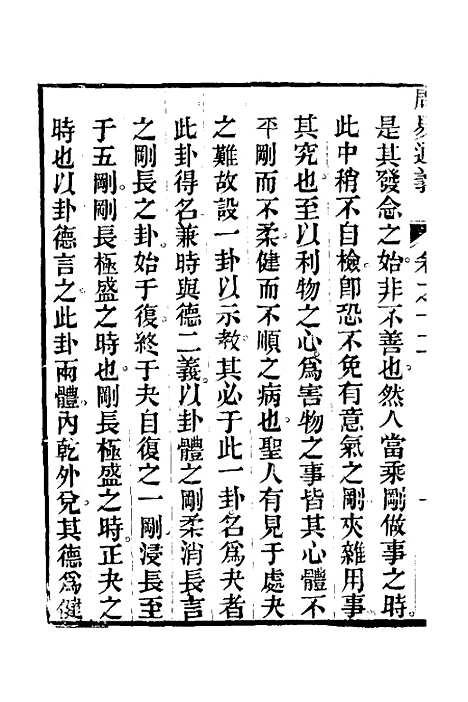 周易通義 卷之
是其發念之始。非不善也。然人當乘剛做事之時。
此中稍不自檢。卽恐不免有意氣之剛夾雜用事
其究也。至以利物之心。爲害物之事。皆其心體不
平。剛而不柔。健而不順之病也。聖人有見于處夬
之難。故設一卦以示教。其必于此一卦名爲夬者
此卦得名兼時與德二義。以卦體之剛柔消長言
之。剛長之卦。始于復。終于夬。自復之一剛浸長至
于五剛。剛長極盛之時也。剛長極盛之時。正夬之
時也。以卦德言之。此卦兩體。內乾外兌。其德爲健